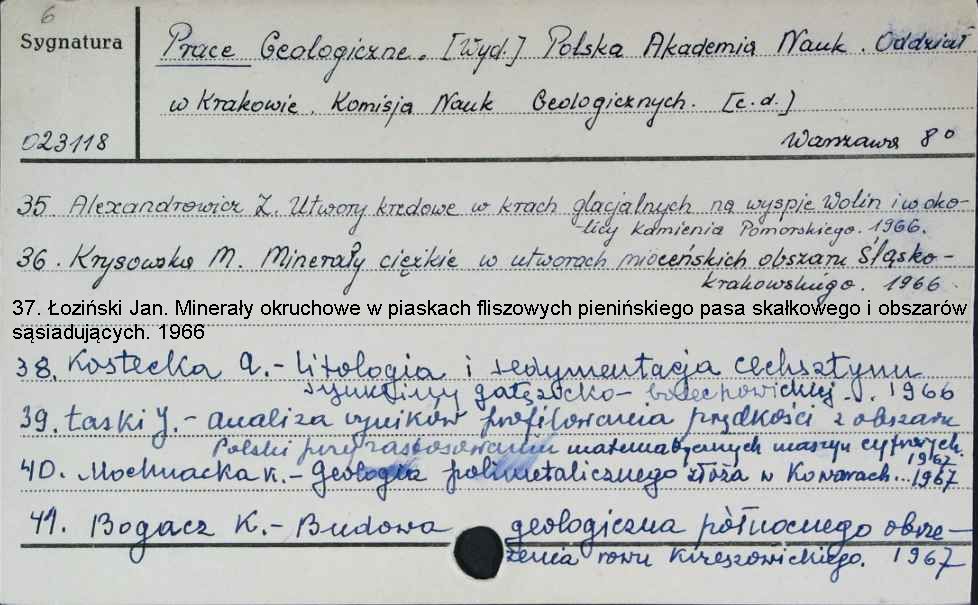 6
Sygnatura
Prace Geologiczne. [Wyd.] Polska Akademia Nauk. Oddział
w Krakowie. Komisja Nauk Geologicznych. [c.d.]
023118
Warszawa 8°
35. Alexandrowicz Z. Utwory kredowe w krach glacjalnych na wyspie Wolin i w oko-
licy Kamienia Pomorskiego. 1966.
36. Krysowska M. Minerały ciężkie w utworach mioceńskich obszaru Śląsko-
krakowskiego. 1966.
37. Łoziński Jan. Minerały okruchowe w piaskach fliszowych pienińskiego pasa skałkowego i obszarów
sąsiadujących. 1966
38. Kostecka A. - Litologia i sedymentacja cechsztynu
synkliny gałęzicko-bolechowickiej. 1966
39. Łaski J. - Analiza wyników profilowania prędkości z obszaru
Polski przy zastosowaniu matematycznych maszyn cyfrowych.
1967
40. Mochnacka K. - Geologia polimetalicznego złoża w Kowarach... 1967
41. Bogacz K. - Budowa geologiczna północnego obrze-
żenia rowu krzeszowickiego. 1967